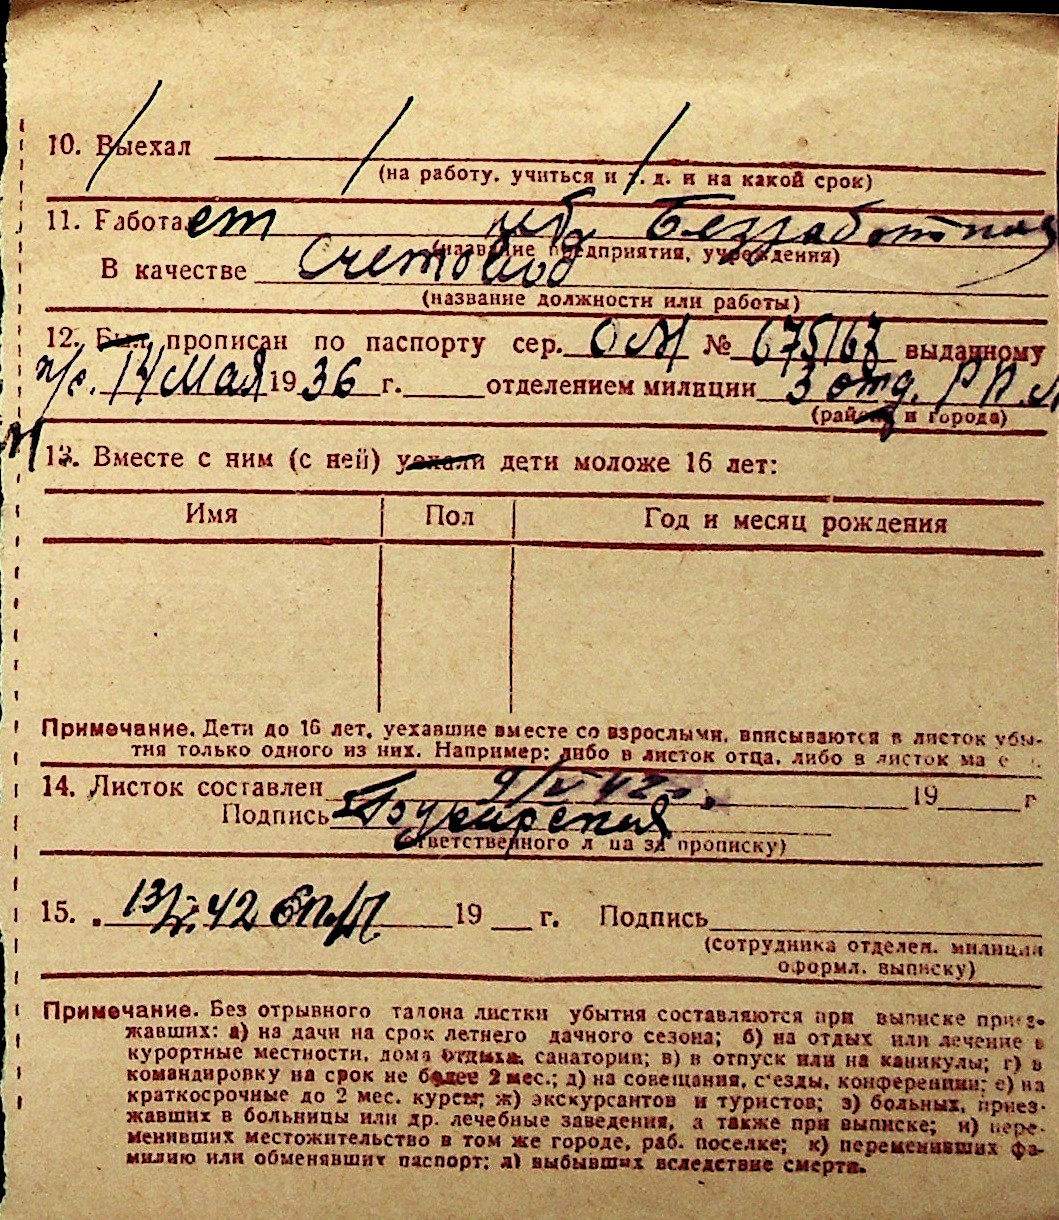 10. Выехал
(на работу, учиться и т. д. и на какой срок)
11. Работает Безработная
(название предприятия, учреждения)
В качестве Счетовод
(название должности или работы)
12. Был прописан по паспорту сер. ОМ № 675167 выданному
14 Мая 1936 г. отделением милиции 3 отд. РКМ
(района и города)
13. Вместе с ним (с ней) уехали дети моложе 16 лет:
Имя Пол Год и месяц рождения
Примечание. Дети до 16 лет, уехавшие вместе со взрослыми, вписываются в листок убы-
тия только одного из них. Например: либо в листок отца, либо в листок ма
14. Листок составлен 9/IV 42 г. 19 г
Подпись
(ответственного лица за прописку)
15. 13/IV 42 19 г. Подпись
(сотрудника отделен. милиции
оформл. выписку)
Примечание. Без отрывного талона листки убытия составляются при выписке приез-
жавших: а) на дачи на срок летнего дачного сезона; б) на отдых или лечение в
курортные местности, дома отдыха, санатории; в) в отпуск или на каникулы; г) в
командировку на срок не более 2 мес.; д) на совещания, с'езды, конференции; е) на
краткосрочные до 2 мес. курсы; ж) экскурсантов и туристов; з) больных, приез-
жавших в больницы или др. лечебные заведения, а также при выписке; и) пере-
менивших местожительство в том же городе, раб. поселке; к) переменивших фа-
милию или обменявшит паспорт; л) выбывших вследствие смерти.